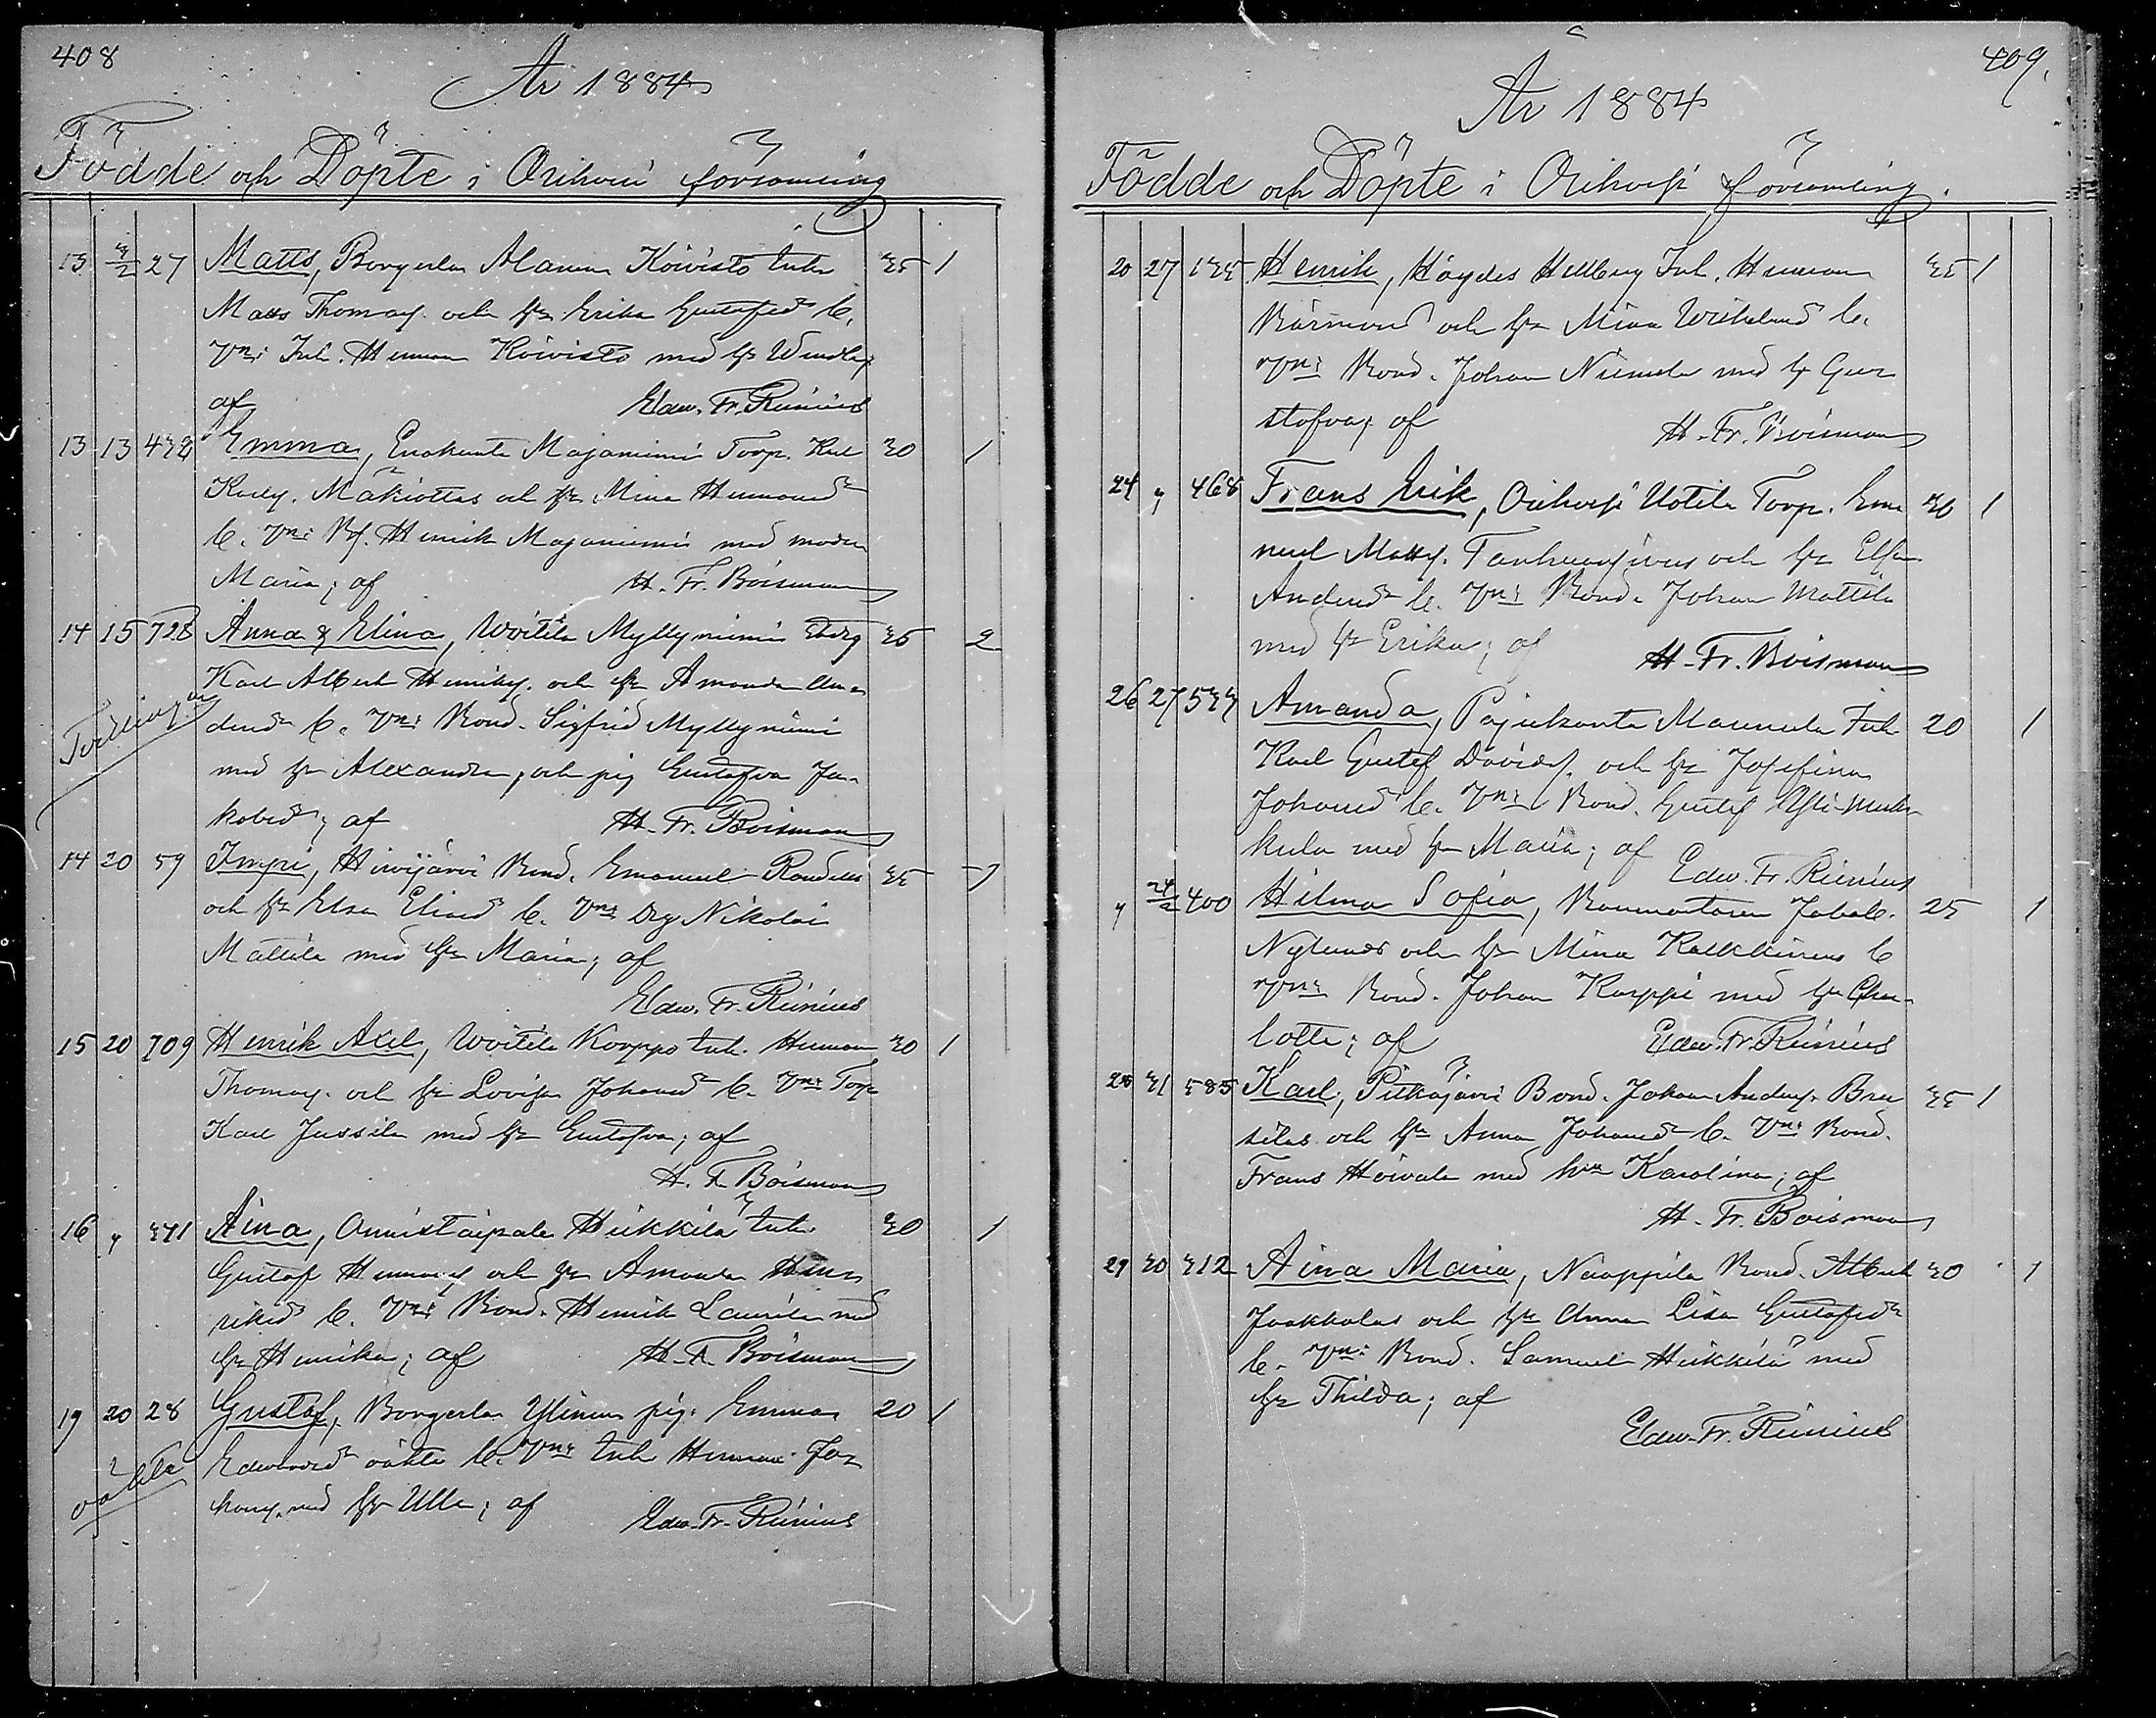 408
År 1884
Födde och Döpte i Orihvesi församling
13 4/2 27 Matts, Borgerla Alanen Koivisto Inh. 35 1
Matts Thomass. och h:u Erika Gustafsd:r l.
V:n: Inh. Herman Koivisto med h:u Wendla;
af Edw. Fr. Rinnius
13 13 432 Emma, Enokunta Majaniemi Torp. Karl 30 1
Karls. Mäkiottas och h:u Mina Hermansd:r
l. V:n: Bs. Henrik Majaniemi med modren
Maria; af H. Fr. Boisman
14 15 728 Anna & Elina, Woitila Myllyniemi Ebdrg 35 2
Karl Albert Henriks. och h:u Amanda An-
Tvillingar
dersd:r l. V:n: Bond. Sigfrid Myllyniemi
med h:u Alexandra, och pig. Gustafva Ja-
kobsd:r; af H. Fr. Boisman
14 20 59 Impi, Hirvijärvi Bond. Emanuel 35 1
och h:u Elsa Eliasd:r l. V:n: Drg Nikolai
Mattila med h:u Maria; af
Edw. Fr. Rinnius
15 20 709 Henrik Axel, Woitila Korppo Inh. Herman 30 1
Thomass. och h:u Lovisa Johansd:r l. V:n: Torp.
Karl Jussila med h:u Gustafva; af
H. F. Boisman
16 " 371 Aina, Onnistaipale Heikkilä Inh. 30 1
Gustaf Hermanss. och h:u Amanda Hen-
riksd:r l. V:n: Bond. Henrik Laurila med
h:u Henrika; af H. F. Boisman
19 20 28 Gustaf, Borgerla Ylinen pig. Emma 20 1
Edwardsd:r oäkta l. V:n: Inh. Herman Jo-
oäkta
hans. med h:u Ulla; af Edw. Fr. Rinnius
409.
År 1884
Födde och Döpte i Orihvesi församling.
20 27 135 Henrik, Hellberg Inh. Herman 35 1
och h:u Mina Wilhelmsd:r l.
V:n: Bond. Johan Niemela med h:u Gu-
stafva; af H. Fr. Boisman
24 " 468 Frans Erik, Orihvesi Uotila Torp. Ema- 30 1
nuel Matts. och h:u Elsa
Andersd:r l. V:n: Bond. Johan Mattila
med h:u Erika; af H. Fr. Boisman
26 27 544 Amanda, Pajukanta Maunula Inh. 20 1
Karl Gustaf Davids. och h:u Josefina
Johansd:r l. V:n: Bond. Gustaf Yli-Muk-
kula med h:u Maria; af Edw. Fr. Rinnius
" 24/2 400 Hilma Sofia, 25 1
Nylunds och h:u Mina l
V:n: Bond. Johan Karppi med h:u Char-
lotta; af Edw. Fr. Rinnius
28 31 585 Karl, Pitkäjärvi Bond. Johan Anders. 35 1
och h:u Anna Johansd:r l. V:n: Bond.
Frans med h:u Karolina; af
H. Fr. Boisman
29 30 312 Aina Maria, Naappila Bond. Albert 30 1
Jaakkolas och h:u Anna Lisa Gustafsd:r
l. V:n: Bond. Samuel Heikkilä med
h:u Thilda; af
Edw. Fr. Rinnius